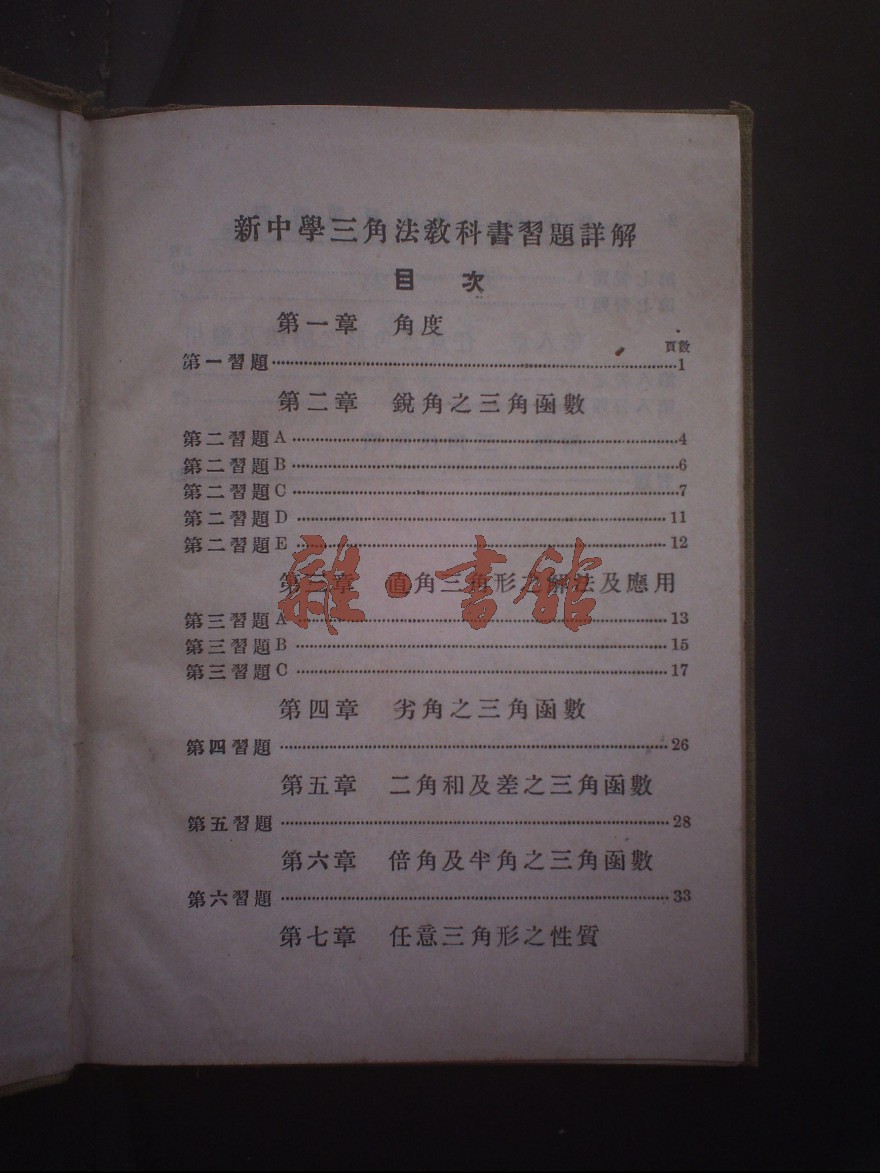 新中學三角法教科書習題詳解
目 次
第一章 角度
頁數
第一習題……1
第二章 銳角之三角函數
第二習題A……4
第二習題B……6
第二習題C……7
第二習題D……11
第二習題E……12
第三章 直角三角形之解法及應用
雜·書館
第三習題A……13
第三習題B……15
第三習題C……17
第四章 劣角之三角函數
第四習題……26
第五章 二角和及差之三角函數
第五習題……28
第六章 倍角及半角之三角函數
第六習題……33
第七章 任意三角形之性質